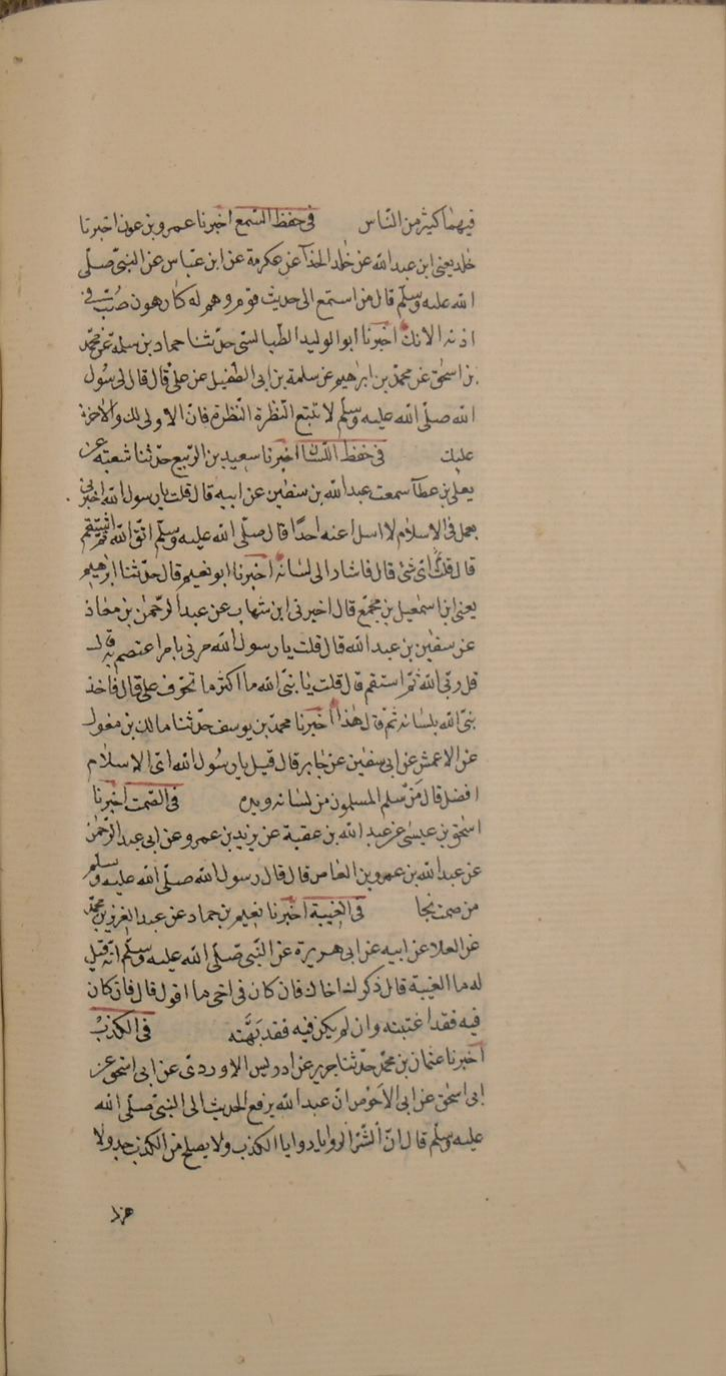 فيهما كثير من الناس في حفظ السمع اخبرنا عمرو بن عون اخبرنا
خلد يعني ابن عبد الله عن خلد الحذآ عن عكرمة عن ابن عباس عن النبي صلّى
الله عليه وسلّم قال من استمع الى حديث قوم وهم له كارهون صُبّ في
اذنه الانك اخبرنا ابو الوليد الطيالسي حدّثنا حماد بن سلمة عن محمّد
بن اسحق عن محمّد بن ابرٰهيم عن سلمة بن ابي الطفيل عن علي قال قال لي رسول
الله صلّى الله عليه وسلّم لا تتبع النظرة النظرة فانّ الاولى لك والاخرة
عليك في حفظ اللسان اخبرنا سعيد بن الربيع حدّثنا شعبة عن
يعلى بن عطآ سمعت عبد الله بن سفين عن ابيه قال قلت يا رسول الله اخبرني
بعمل في الاسلام لا اسل عنه احدًا قال صلّى الله عليه وسلّم اتق الله ثم استقم
قال قلت ايّ شئ قال فاشاد الى لسانه اخبرنا ابو نعيم قال حدّثنا ابرٰهيم
يعني ابن اسمعيل بن مجمّع قال اخبرني ابن شهاب عن عبد الرّحمٰن بن معاذ
عن سفيٰن بن عبد الله قال قلت يا رسول الله مرني بامر اعتصم به قال
قل ربّي الله ثمّ استقم قال قلت يا نبيّ الله ما اكثر ما تخوّف عليّ قال فاخذ
نبيّ الله بلسانه ثمّ قال هٰذا اخبرنا محمّد بن يوسف حدّثنا مالك بن مغول
عن الاعمش عن ابي سفيٰن عن جابر قال قيل يا رسول الله ايّ الاسلام
افضل قال مَن سلم المسلمون من لسانه ويده في الصمت اخبرنا
اسحٰق بن عيسٰى عن عبد الله بن عقبة عن يزيد بن عمرو عن ابي عبد الرّحمٰن
عن عبد الله بن عمرو بن العاص قال قال رسول الله صلّى الله عليه وسلم
من صمت نجا في الغيبة اخبرنا نعيم بن حماد عن عبد العزيز بن محمّد
عن العلا عن ابيه عن ابي هريرة عن النّبي صلّى الله عليه وسلّم انّه قيل
له ما الغيبة قال ذكرك اخاك فان كان في اخي ما اقول قال فان كان
فيه فقد اغتبته وان لم يكن فيه فقد بَهَتّه في الكذب
اخبرنا عثمان بن محمّد حدّثنا جرير عن ادريس الاوردي عن ابي اسحق عن
ابي اسحٰق عن ابي الاحوص انّ عبد الله يرفع الحديث الى النبيّ صلّى الله
عليه وسلّم قال انّ الشرّ الروايا روايا الكذب ولا يصلح من الكذب جد ولا
هزل